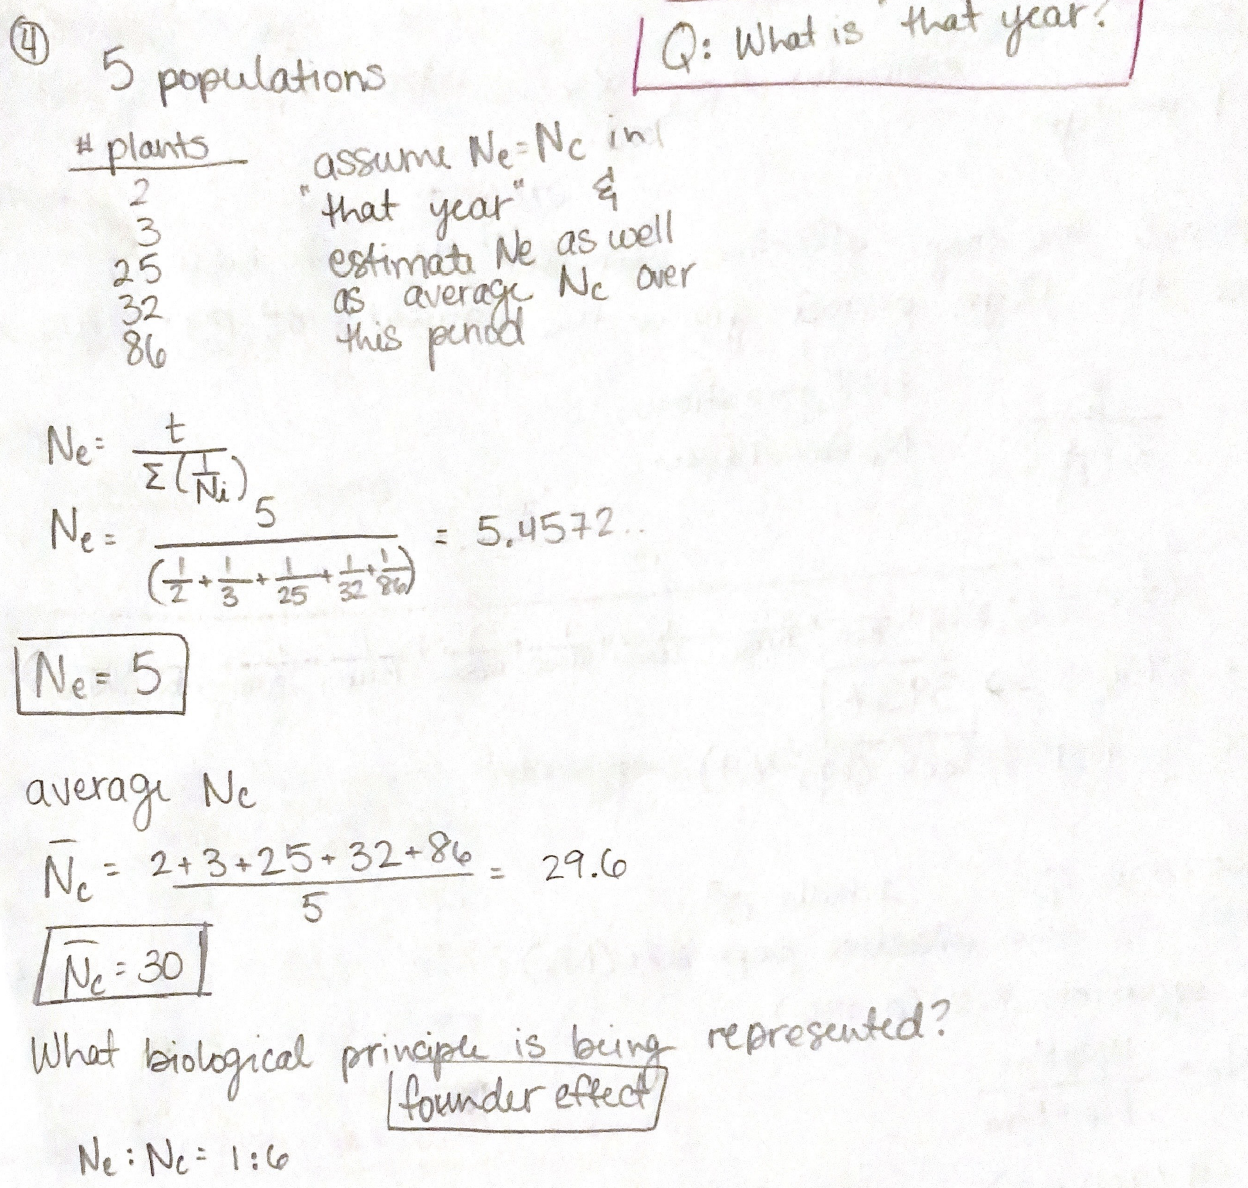 ④
Q: What is "that year?
5 populations
# plants
2
3
25
32
86
assume Ne=Nc in
"that year" &
estimate Ne as well
as average Nc over
this period
Ne= t / Σ(1/Ni)
Ne= 5 / (1/2+1/3+1/25+1/32+1/86) = 5.4572..
Ne= 5
average Nc
N̄c = 2+3+25+32+86 / 5 = 29.6
N̄c = 30
What biological principle is being represented?
founder effect
Ne:Nc= 1:6